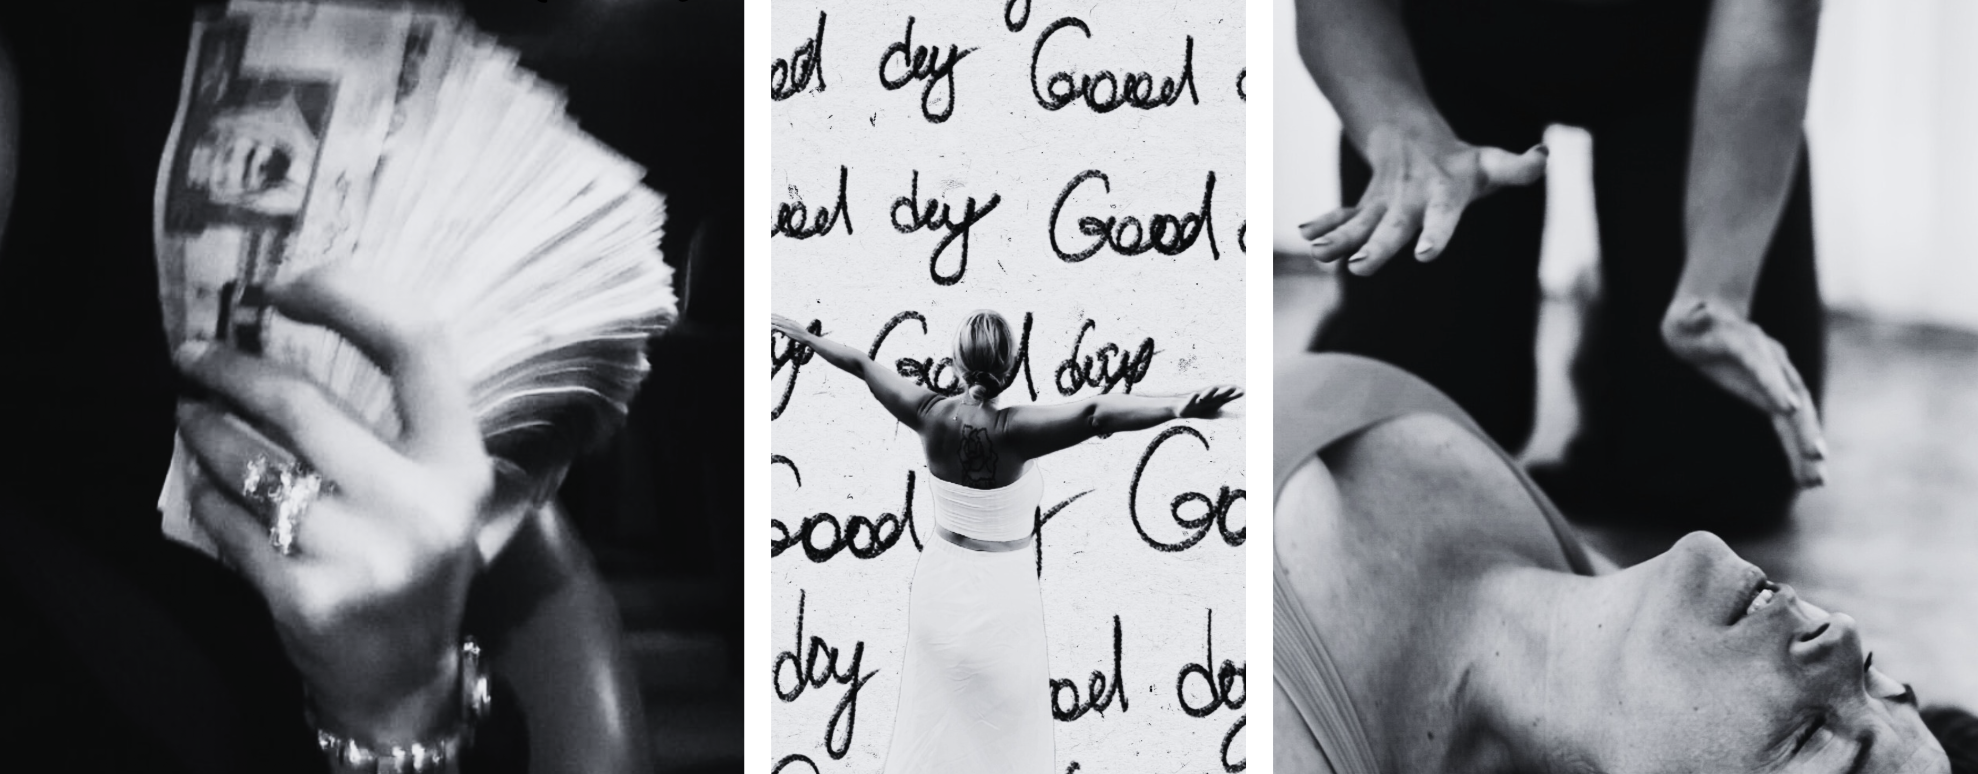 ood day Good
ood day Good
day Good days
Good Go
day ood da